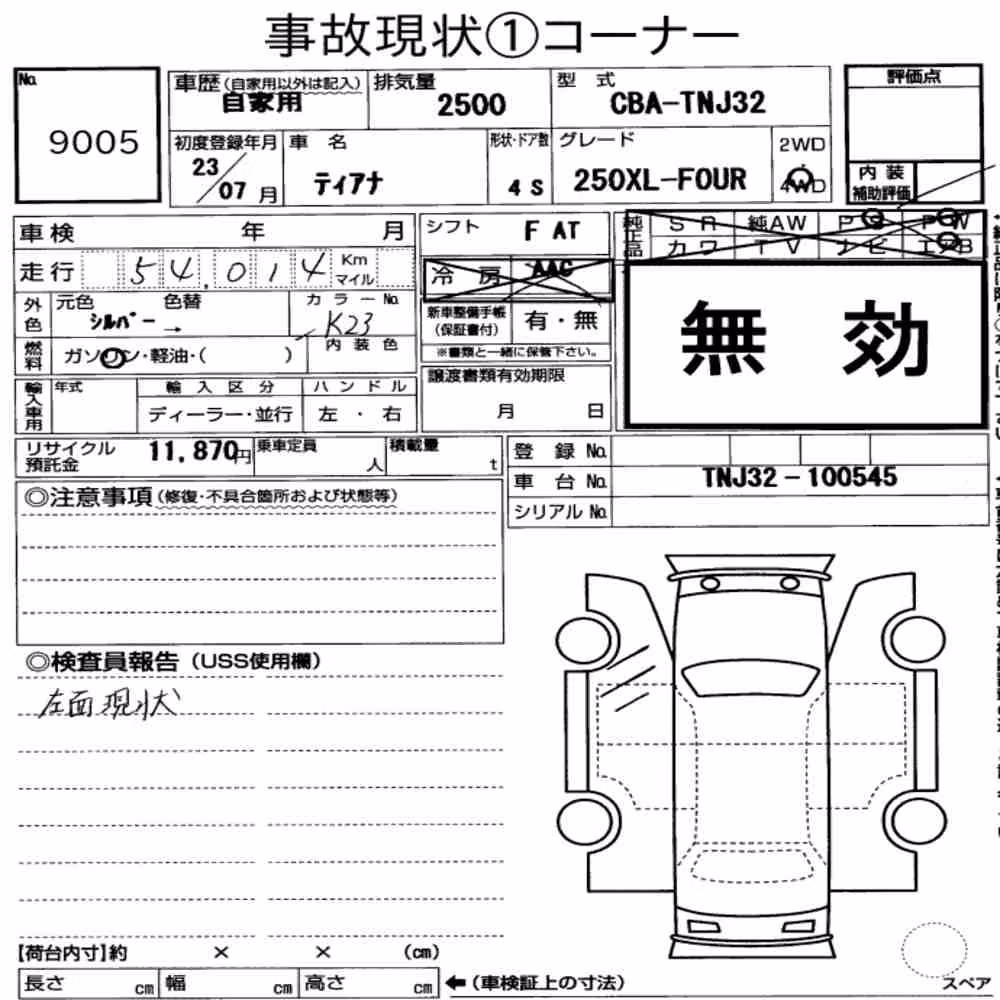 事故現状①コーナー
No.
9005
車歴(自家用以外は記入)
自家用
排気量
2500
型 式
CBA-TNJ32
評価点
初度登録年月
23
07 月
車 名
ティアナ
形状・ドア数
4 S
グレード
250XL-FOUR
2WD
4WD
内 装
補助評価
車検 年 月
シフト
F AT
純正品
S R 純AW P S P W
カ ワ T V ナ ビ エ ア B
走行 54,014 Km
マイル
冷 房
AAC
無 効
外色
元色 色替
シルバー →
カラーNo.
K23
新車整備手帳
(保証書付)
有・無
※書類と一緒に保管下さい。
燃料
ガソリン・軽油・( )
内 装 色
輸入車用
年式
輸 入 区 分
ディーラー・並行
ハ ン ド ル
左 ・ 右
譲渡書類有効期限
月 日
リサイクル
預託金
11,870円
乗車定員
人
積載量
t
登 録 No.
車 台 No.
TNJ32-100545
シリアル No.
◎注意事項(修復・不具合箇所および状態等)
◎検査員報告(USS使用欄)
左面現状
【荷台内寸】約 × × (cm)
長さ cm 幅 cm 高さ cm ←(車検証上の寸法)
スペア